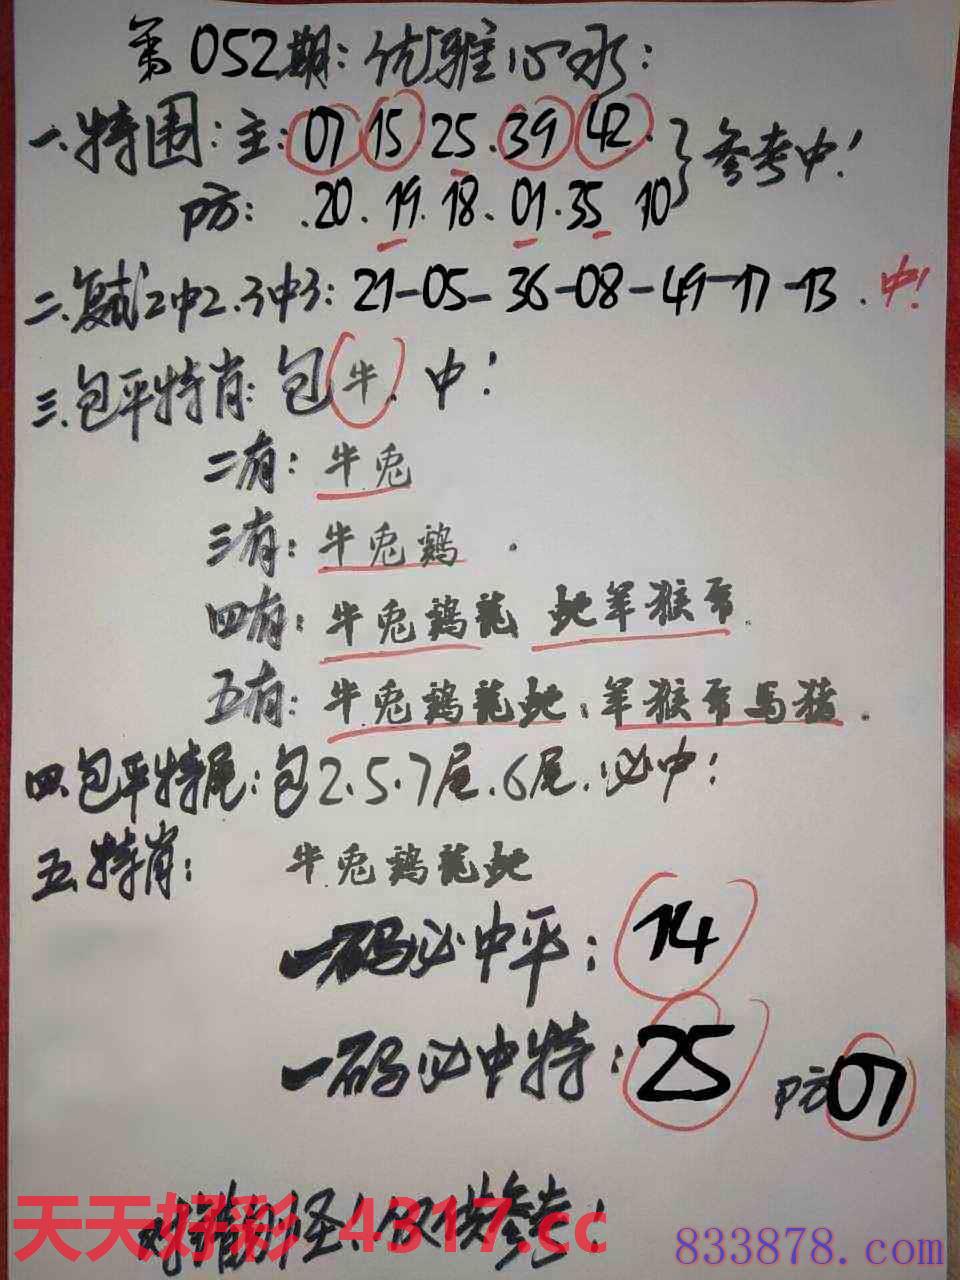 第052期：优雅心水：
一.特围：主：07 15 25 39 42. 参考中！
防：.20.19.18.01.35 10
二.复试2中2.3中3：21-05-36-08-49-17-13.中！
三.包平特肖：包牛.中！
二有：牛兔
三有：牛兔鷄.
四有：牛兔鷄龍 虵羊猴
五有：牛兔鷄龍虵：羊猴 馬猪.
四.包平特尾：包2.5.7尾.6尾.必中！
五.特肖：牛兔鷄龍虵
一码必中平：14
一码必中特：25 防07
对错勿怪！仅供参考！
天天好彩 4317.cc
833878.com